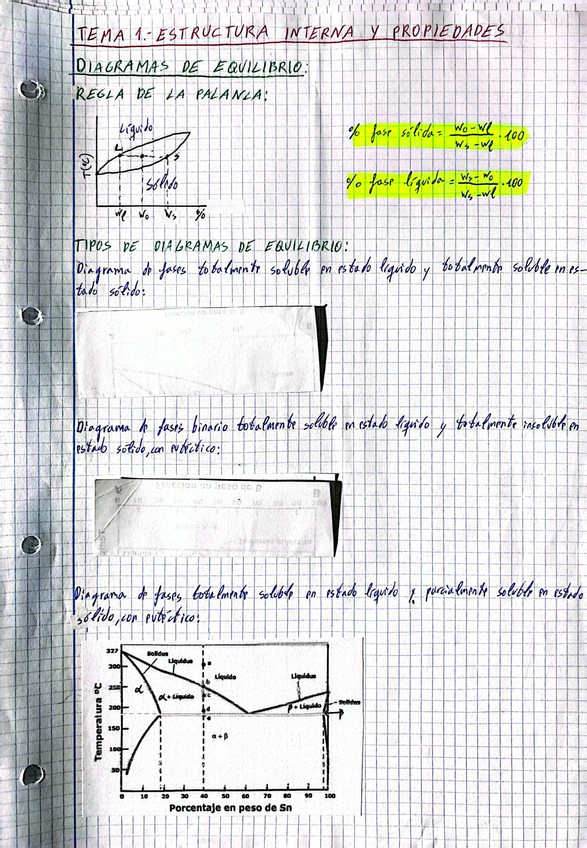 TEMA 1.- ESTRUCTURA INTERNA Y PROPIEDADES
DIAGRAMAS DE EQUILIBRIO:
REGLA DE LA PALANCA:
Líquido
L
S
Sólido
T(ºC)
wl w0 ws %
% fase sólida = w0-wl / ws-wl · 100
% fase líquida = ws-w0 / ws-wl · 100
TIPOS DE DIAGRAMAS DE EQUILIBRIO:
Diagrama de fases totalmente soluble en estado líquido y totalmente soluble en es-
tado sólido:
Diagrama de fases binario totalmente soluble en estado líquido y totalmente insoluble en
estado sólido, con eutéctico:
Diagrama de fases totalmente soluble en estado líquido y parcialmente soluble en estado
sólido, con eutéctico:
Temperatura ºC
327
300
250
200
150
100
50
Solidus
Líquidus
Líquido
Líquidus
Solidus
α
α + Líquido
β + Líquido
β
α + β
a
b
c
d
e
0 10 20 30 40 50 60 70 80 90 100
Porcentaje en peso de Sn